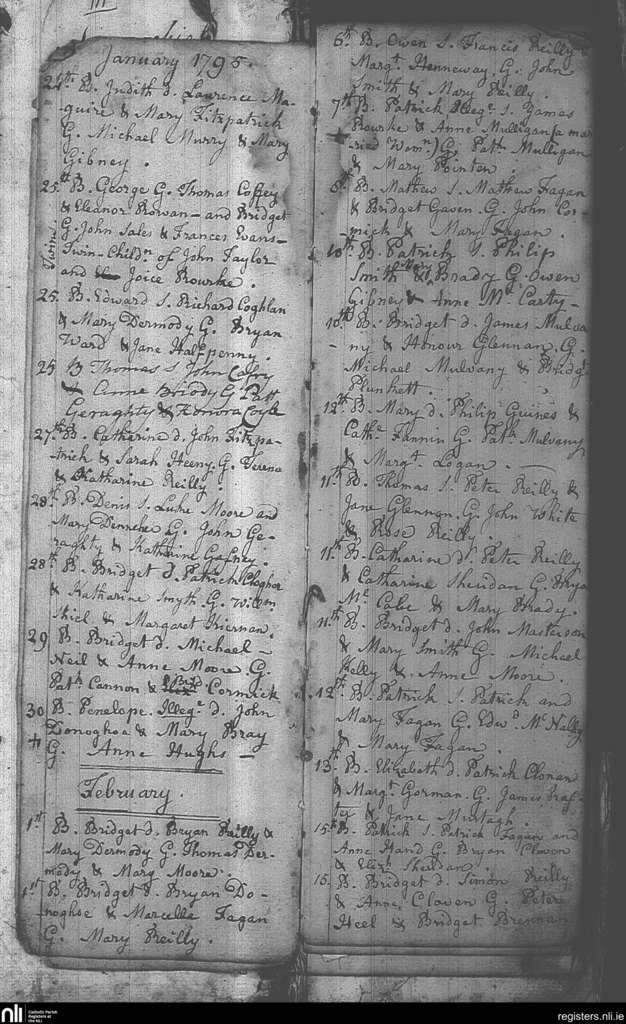 January 1795.
24th B. Judith d. Laurence Ma-
guire & Mary Fitzpatrick
G. Michael Murry & Mary
Gibney.
25th B. George G. Thomas Coffey
& Eleanor Rowan - and Bridget
G. John Sales & Frances Evans -
Twins
Twin-Childn of John Taylor
and Joice Rourke.
25. B. Edward S. Richard Coghlan
& Mary Dermody G. Bryan
Ward & Jane Halfpenny.
25 B Thomas S John Cafry
& Anne Briody G Patt
Geraghty & Honora Coyle
27th B. Catharine d. John Fitzpa-
trick & Sarah Heeny. G. Terena
& Katharine Reilly.
28th B. Denis S. Luke Moore and
Mary Dennehe G. John Ge-
raghty & Katharine Gafney.
28th B. Bridget d. Patrick Clogher
& Katharine Smyth G. Willm
Shiel & Margaret Kiernan.
29 B. Bridget d. Michael -
Neil & Anne Moore. G.
Patk Cannon & Brid Cormick
30 B. Penelope. Illegte d. John
Donoghoe & Mary Bray
G. Anne Hughs -
February.
1st B. Bridget d. Bryan Reilly &
Mary Dermody G. Thomas Der-
mody & Marg Moore.
1st B. Bridget d. Bryan Do-
noghoe & Marcella Fagan
G. Mary Reilly.
6th B. Owen S. Francis Reilly
Margt Henneway. G. John
Smith & Mary Reilly.
7th B. Patrick Illege S. James
Rourke & Anne Mulligan (a mar
ried Womn) G. Patk Mulligan
& Mary Pointen
8th B. Mathew S. Mathew Fagan
& Bridget Gaven. G. John Cor-
mick & Mary Fagan.
10th B. Patrick S. Philip
Smith & Mary Brady G. Owen
Gibney & Anne Mc Carty -
10th B. Bridget d. James Mulva
ny & Honour Glennan. G.
Michael Mulvany & Bridgt
Plunkett.
12th B. Mary d. Philip Guines &
Cathe Fannin G. Patk Mulvany
& Margt Logan.
11th B. Thomas S. Peter Reilly &
Jane Glennon. G. John White
& Rose Reilly.
11th B. Catharine d. Peter Reilly
& Catharine Sheridan G. Brya
Mc Cabe & Mary Brady.
11th B. Bridget d. John Masterson
& Mary Smith G. Michael
Kelly & Anne Moore.
12th B. Patrick S. Patrick and
Mary Fagan G. Edwd Mc Nally
& Mary Fagan.
13th B. Elizabeth d. Patrick Clonan
& Margt Gorman. G. James
& Jane Murtagh.
15th B. Patrick S. Patrick Fagan and
Anne Hand G. Bryan Claven
& Elizh Sheridan.
15. B. Bridget d. Simon Reilly
& Anne Claven G. Peter
Heel & Bridget Brennan
nli
Catholic Parish
Registers at
the NLI
registers.nli.ie